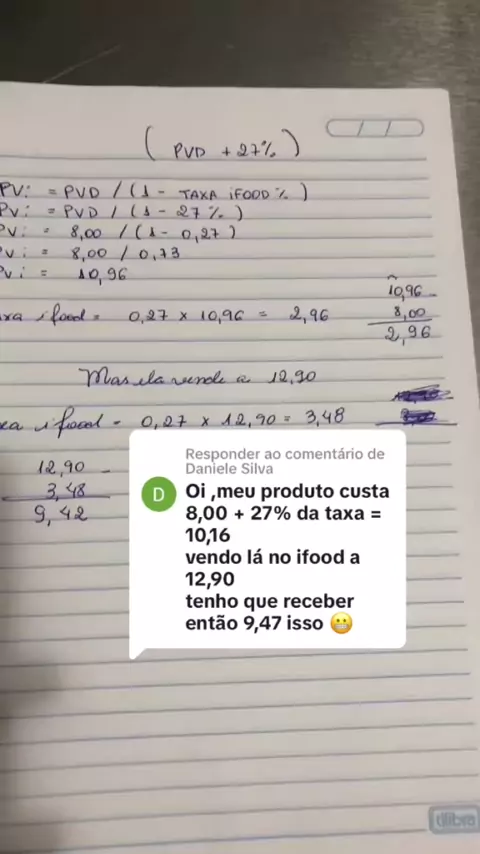 ( PVD + 27% )
PVi = PVD / (1 - TAXA iFOOD %)
PVi = PVD / (1 - 27%)
PVi = 8,00 / (1 - 0,27)
PVi = 8,00 / 0,73
PVi = 10,96
10,96
8,00
2,96
xa ifood = 0,27 x 10,96 = 2,96
Mas ela vende a 12,90
xa ifood = 0,27 x 12,90 = 3,48
12,90 -
3,48
9,42
Responder ao comentário de
Daniele Silva
D
Oi ,meu produto custa
8,00 + 27% da taxa =
10,16
vendo lá no ifood a
12,90
tenho que receber
então 9,47 isso 😬
dilibra